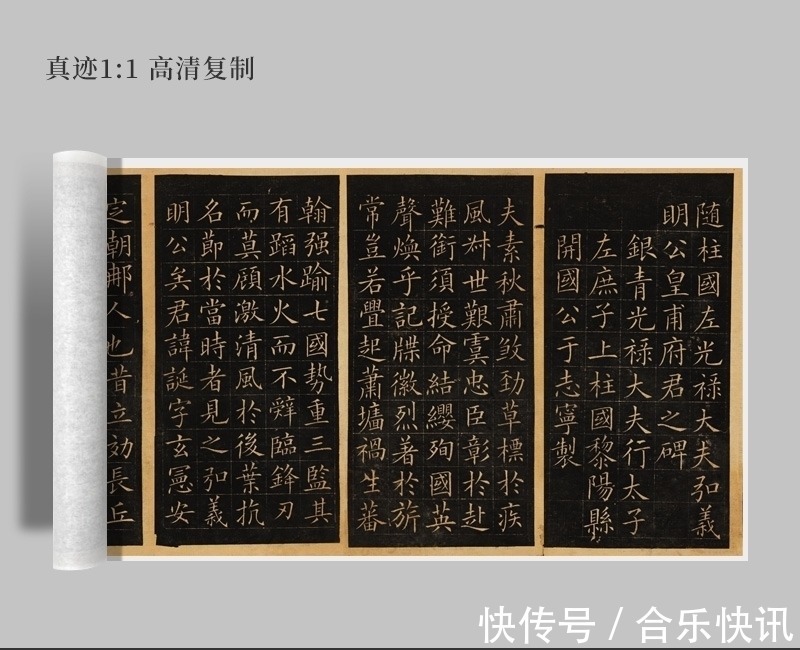 真迹1:1 高清复制
隨柱國左光祿大夫弘義
明公皇甫府君之碑
銀青光祿大夫行太子
左庶子上柱國黎陽縣
開國公于志寧製
夫素秋肅煞勁草標於疾
風叔世艱虞忠臣彰於赴
難銜須授命結纓殉國英
聲煥乎記牒徽烈著於旂
常豈若舋起蕭墻禍生蕃
翰强踰七國勢重三監其
有蹈水火而不辤臨鋒刃
而莫顧激清風於後葉抗
名節於當時者見之弘義
明公矣君諱誕字玄憲安
定朝那人也昔立効長丘
快传号 / 合乐快讯